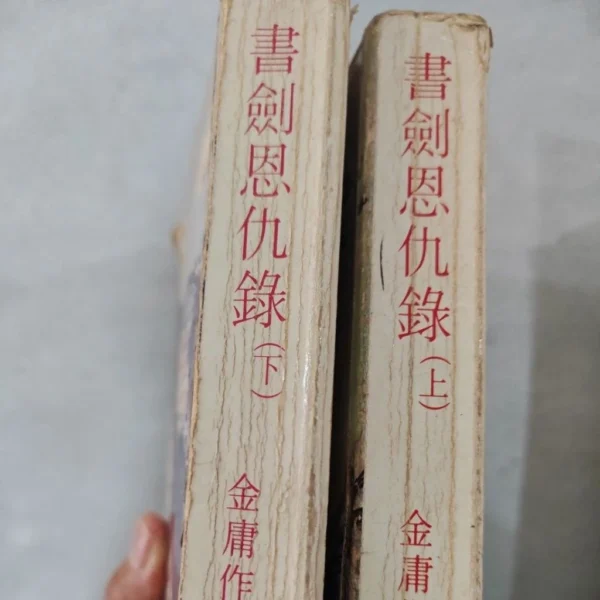 書劍恩仇錄(上)
金庸
書劍恩仇錄(下)
金庸作